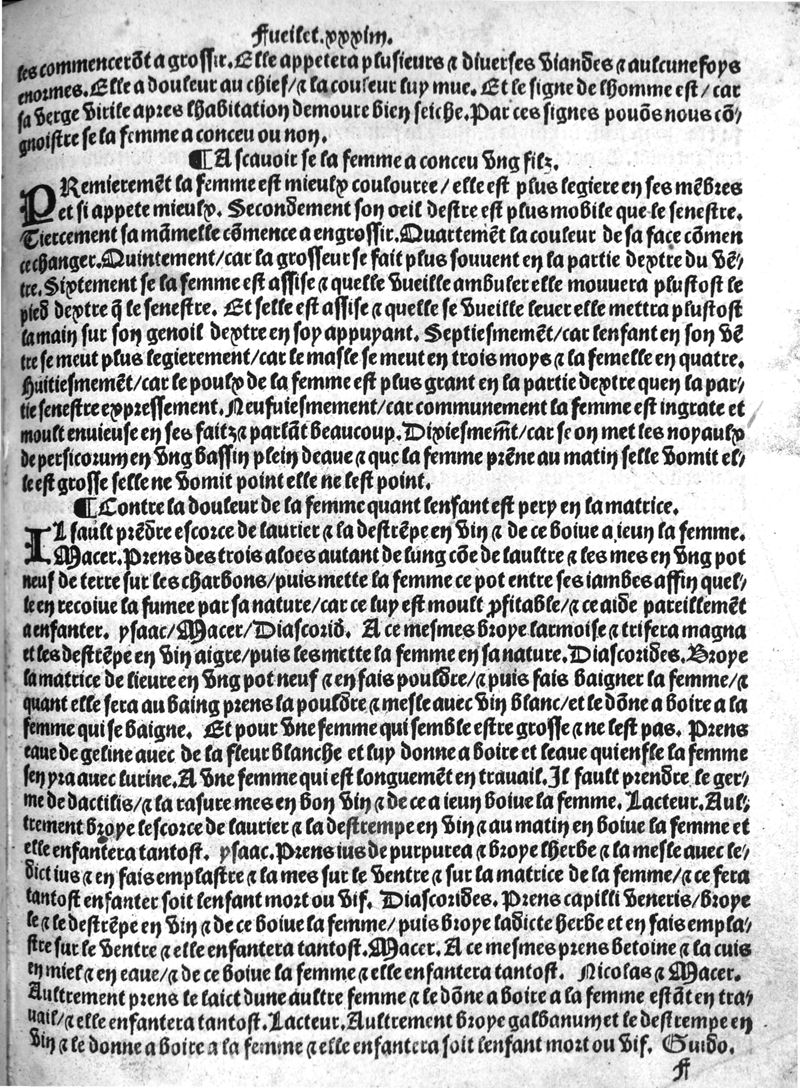 Fueillet.xxxiiii.
les commencerõt a grossir. Elle appetera plusieurs ⁊ diuerses viandes ⁊ aulcunefoys
enormes. Elle a douleur au chief/⁊ la couleur luy mue. Et le signe de lhomme est/car
sa verge virile apres lhabitation demoure bien seiche. Par ces signes pouõs nous cõ-
gnoistre se la femme a conceu ou non.
¶ A scauoir se la femme a conceu vng filz.
PRemieremẽt la femme est mieulx coulouree/elle est plus legiere en ses mẽbres
et si appete mieulx. Secondement son oeil destre est plus mobile que le senestre.
Tiercement sa mãmelle cõmence a engrossir. Quartemẽt la couleur de sa face cõmen
ce changer. Quintement/car la grosseur se fait plus souuent en la partie dextre du vẽ-
tre. Sixtement se la femme est assise ⁊ quelle vueille ambuler elle mouuera plustost le
pied dextre q̃ le senestre. Et selle est assise ⁊ quelle se vueille leuer elle mettra plustost
la main sur son genoil dextre en soy appuyant. Septiesmemẽt/car lenfant en son vẽ
tre se meut plus legierement/car le masle se meut en trois moys ⁊ la femelle en quatre.
Huitiesmemẽt/car le poulx de la femme est plus grant en la partie dextre quen la par-
tie senestre expressement. Neufuiesmement/car communement la femme est ingrate et
moult enuieuse en ses faitz ⁊ parlãt beaucoup. Dixiesmem̃t/car se on met les noyaulx
de persicorum en vng bassin plein deaue ⁊ que la femme prẽne au matin selle vomit el-
le est grosse selle ne vomit point elle ne lest point.
¶ Contre la douleur de la femme quant lenfant est pery en la matrice.
IL fault prẽdre escorce de laurier ⁊ la destrẽpe en vin ⁊ de ce boiue a ieun la femme.
Macer. Prens des trois aloes autant de lung cõe de laultre ⁊ les mes en vng pot
neuf de terre sur les charbons/puis mette la femme ce pot entre ses iambes affin quel-
le en recoiue la fumee par sa nature/car ce luy est moult ꝓfitable/⁊ ce aide pareillemẽt
a enfanter. ysaac/Macer/Diascorid̃. A ce mesmes broye larmoise ⁊ trifera magna
et les destrẽpe en vin aigre/puis les mette la femme en sa nature. Diascorides. Broye
la matrice de lieure en vng pot neuf ⁊ en fais pouldre/⁊ puis fais baigner la femme/⁊
quant elle sera au baing prens la pouldre ⁊ mesle auec vin blanc/et le dõne a boire a la
femme qui se baigne. Et pour vne femme qui semble estre grosse ⁊ ne lest pas. Prens
eaue de geline auec de la fleur blanche et luy donne a boire et leaue qui enfle la femme
sen yra auec lurine. A vne femme qui est longuemẽt en trauail. Il fault prendre le ger-
me de dactilis/⁊ la rasure mes en bon vin ⁊ de ce a ieun boiue la femme. Lacteur. Aul-
trement broye lescorce de laurier ⁊ la destrempe en vin ⁊ au matin en boiue la femme et
elle enfantera tantost. ysaac. Prens ius de purpurea ⁊ broye lherbe ⁊ la mesle auec le-
dict ius ⁊ en fais emplastre ⁊ la mes sur le ventre ⁊ sur la matrice de la femme/⁊ ce fera
tantost enfanter soit lenfant mort ou vif. Diascorides. Prens capilli veneris/broye
le ⁊ le destrẽpe en vin ⁊ de ce boiue la femme/puis broye ladicte herbe et en fais empla-
stre sur le ventre ⁊ elle enfantera tantost. Macer. A ce mesmes prens betoine ⁊ la cuis
en miel ⁊ en eaue/⁊ de ce boiue la femme ⁊ elle enfantera tantost. Nicolas ⁊ Macer.
Aultrement prens le laict dune aultre femme ⁊ le dõne a boire a la femme estãt en tra-
uail/⁊ elle enfantera tantost. Lacteur. Aultrement broye galbanum et le destrempe en
vin ⁊ le donne a boire a la femme ⁊ elle enfantera soit lenfant mort ou vif. Guido.
ff